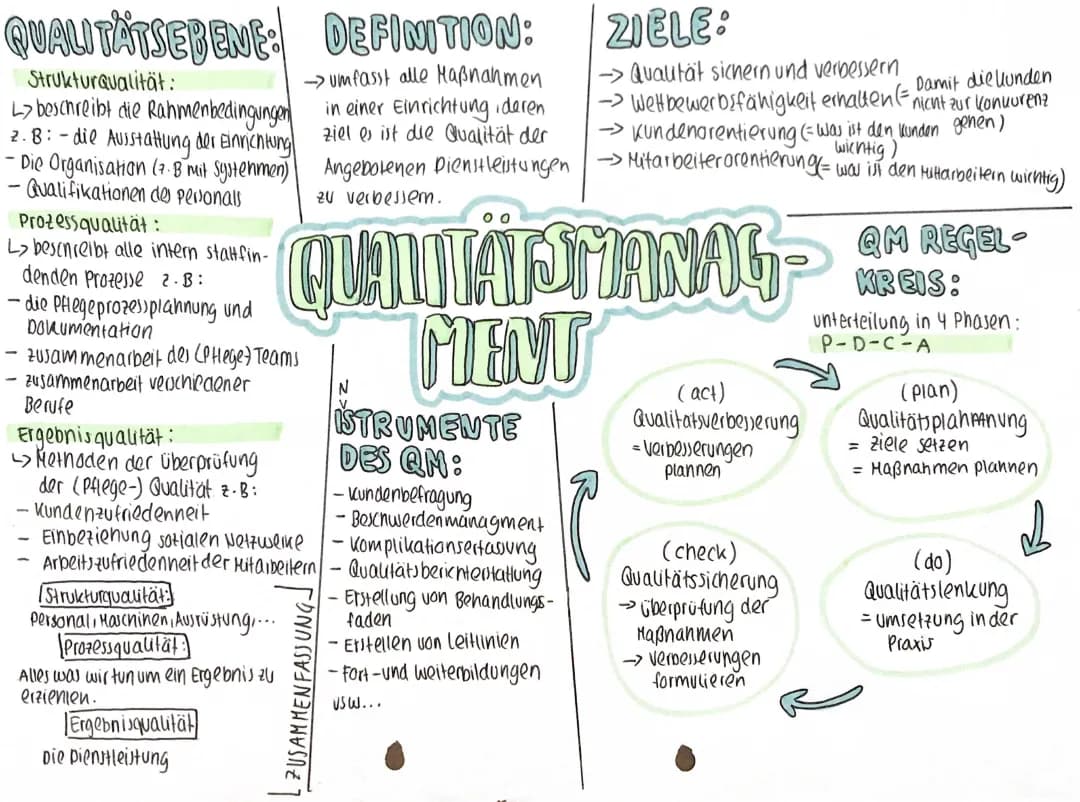 QUALITÄTSEBENE:
Strukturqualität:
↳ beschreibt die Rahmenbedingungen
z.B: - die Ausstattung der Einrichtung
- Die Organisation (z.B mit Systehmen)
- Qualifikationen des personals
Prozessqualität:
↳ beschreibt alle intern stattfin-
denden Prozesse z.B:
- die Pflegeprozessplahnung und
Dokumentation
- zusammenarbeit des (Pflege-) Teams
- zusammenarbeit verschiedener
Berufe
Ergebnisqualität:
↳ Methoden der überprüfung
der (Pflege-) Qualität z.B:
- Kundenzufriedenheit
- Einbeziehung sozialen Netzwerke
- Arbeitszufriedenheit der Mitarbeitern
Strukturqualität:
Personal, Maschinen, Ausrüstung,...
Prozessqualität:
Alles was wir tun um ein Ergebnis zu
erziehlen.
Ergebnisqualität
Die Dienstleistung
ZUSAMMENFASSUNG
DEFINITION:
→ umfasst alle Maßnahmen
in einer Einrichtung, deren
ziel es ist die Qualität der
Angebotenen Dienstleistungen
zu verbessern.
ZIELE:
→ Qualität sichern und verbessern
→ Wettbewerbsfähigkeit erhalten (= Damit die Kunden
nicht zur Konkurenz
gehen)
→ Kundenorentierung (= Was ist den Kunden
wichtig)
→ Mitarbeiterorentierung (= was ist den Mittarbeitern wichtig)
QUALITÄTSMANAG-
MENT
N
ISTRUMENTE
DES QM:
- Kundenbefragung
- Beschwerdenmanagment
- Komplikationserfassung
- Qualitätsberichterstattung
- Erstellung von Behandlungs-
faden
- Erstellen von Leitlinien
- Fort- und weiterbildungen
usw...
QM REGEL-
KREIS:
unterteilung in 4 Phasen:
P-D-C-A
(act)
Qualitätsverbesserung
= Verbesserungen
plannen
(plan)
Qualitätsplahnung
= ziele setzen
= Maßnahmen plannen
(check)
Qualitätssicherung
→ überprüfung der
Maßnahmen
→ Verbesserungen
formulieren
(do)
Qualitätslenkung
= umsetzung in der
Praxis